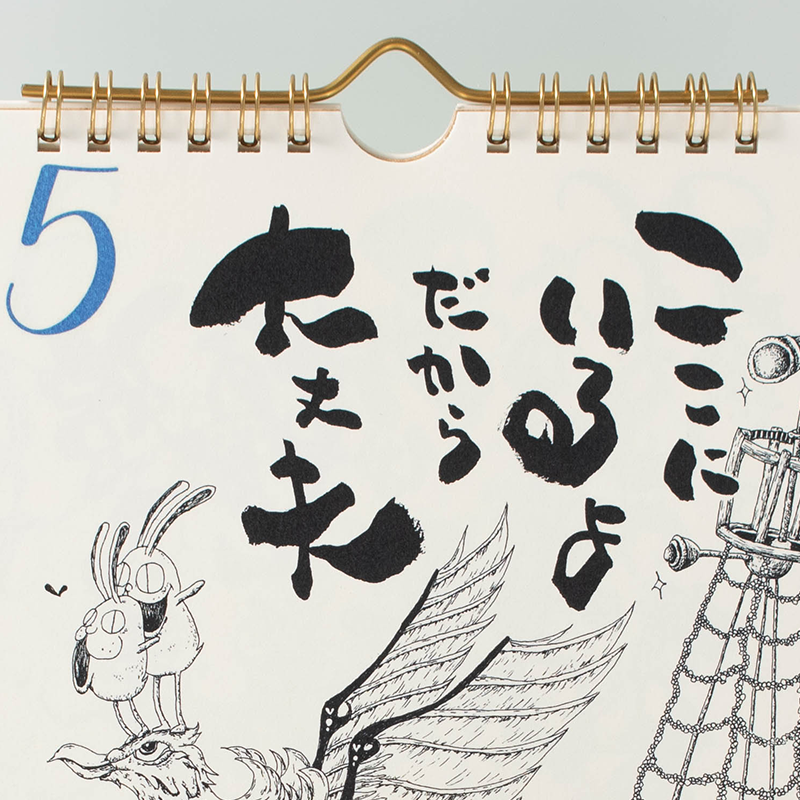 5
ここに
いるよ
だから
大丈夫